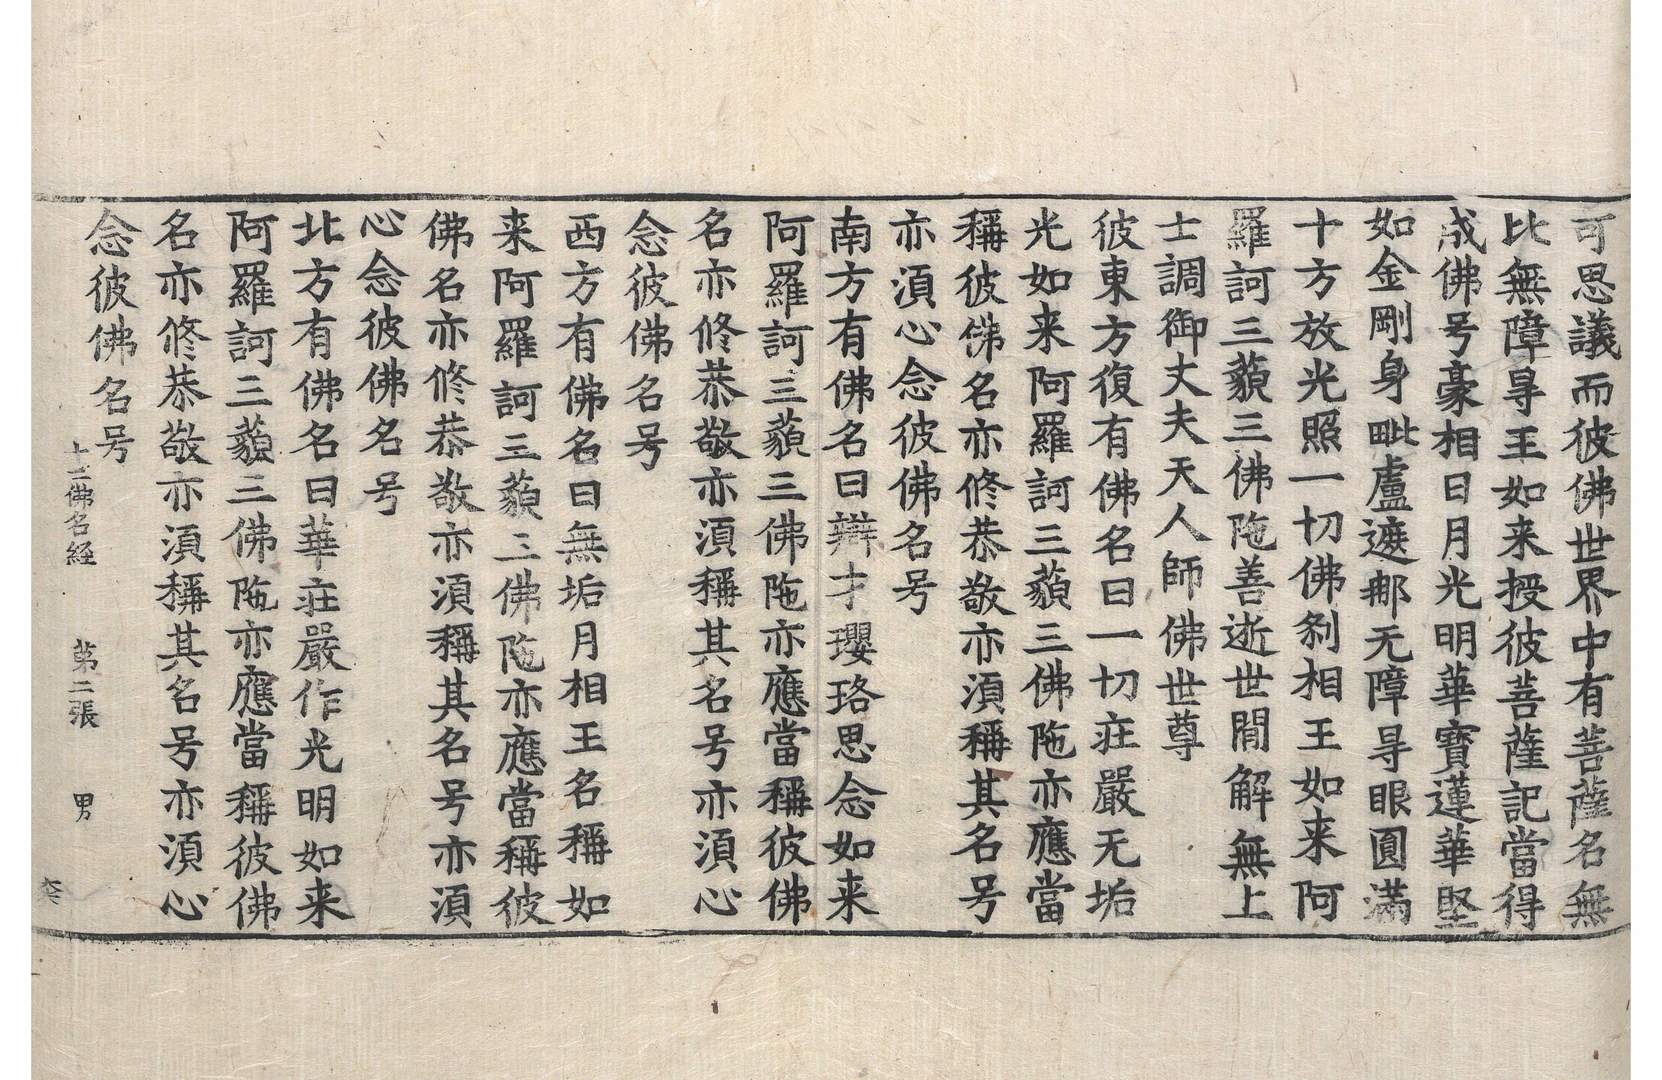 可思議而彼佛世界中有菩薩名無
比無障㝵王如来授彼菩薩記當得
成佛号豪相日月光明華寶蓮華堅
如金剛身毗盧遮那无障㝵眼圓滿
十方放光照一切佛刹相王如来阿
羅訶三藐三佛陁善逝世間解無上
士調御丈夫天人師佛世尊
彼東方復有佛名曰一切莊嚴无垢
光如来阿羅訶三藐三佛陁亦應當
稱彼佛名亦修恭敬亦湏稱其名号
亦湏心念彼佛名号
南方有佛名曰辯才瓔珞思念如来
阿羅訶三藐三佛陁亦應當稱彼佛
名亦修恭敬亦湏稱其名号亦湏心
念彼佛名号
西方有佛名曰無垢月相王名稱如
来阿羅訶三藐三佛陁亦應當稱彼
佛名亦修恭敬亦湏稱其名号亦湏
心念彼佛名号
北方有佛名曰華莊嚴作光明如来
阿羅訶三藐三佛陁亦應當稱彼佛
名亦修恭敬亦湏稱其名号亦湏心
念彼佛名号
十二佛名経 第二張 男